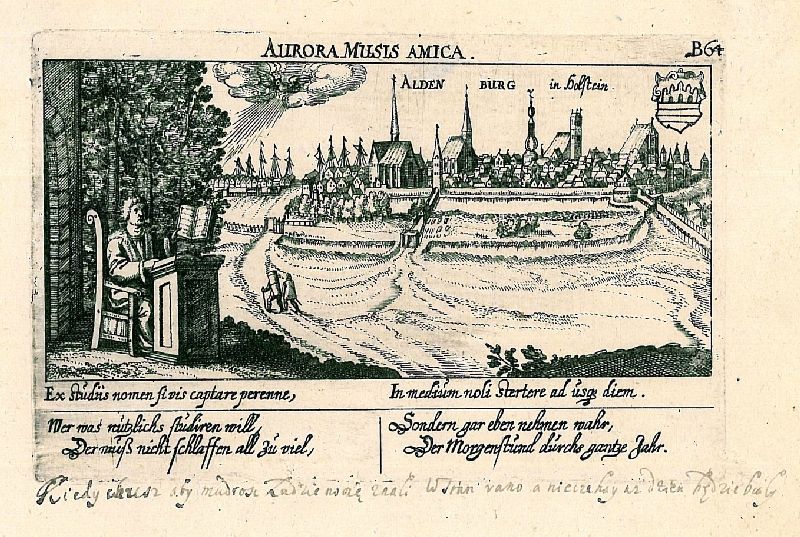 AURORA MUSIS AMICA.
B64
ALDEN BURG in Holstein.
Ex studiis nomen si vis captare perenne,
In medium noli stertere ad usq3 diem.
Wer was nützlichs studiren will,
Der muß nicht schlaffen all zu viel,
Sondern gar eben nehmen wahr,
Der Morgenstund durchs gantze Jahr.
Kiedy chcesz aby mudrosc rano a dzień będzie